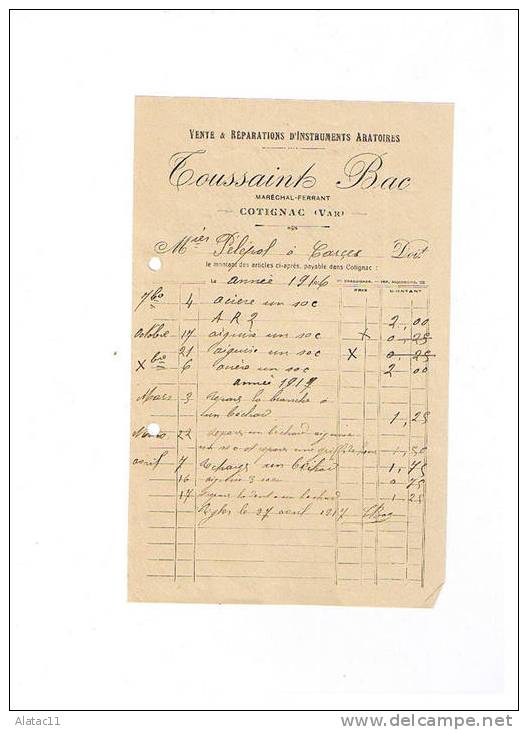 VENTE & RÉPARATIONS D'INSTRUMENTS ARATOIRES
Toussaint Bac
MARÉCHAL-FERRANT
COTIGNAC (VAR)
Pélépol à Carces Doit
le montant des articles ci-après, payable dans Cotignac :
année 1916
PRIX MONTANT
7bre 4 aciere un soc
A R 2 2,00
octobre 17 aiguise un soc x 0-25
21 aiguise un soc x 0-25
Xbre 6 aciere un soc 2 00
année 1917
Mars 3 repare la branche a
un bechard 1,25
Mars 22 repare un bechard aiguise
un soc et repare une 1,50
avril 7 Rechargé un béchard 1,75
16 aiguise 3 soc 0 75
17 repare la dent a un bechard 1-25
Regler le 27 avril 1917 TBac
Alatac11
www.delcampe.net